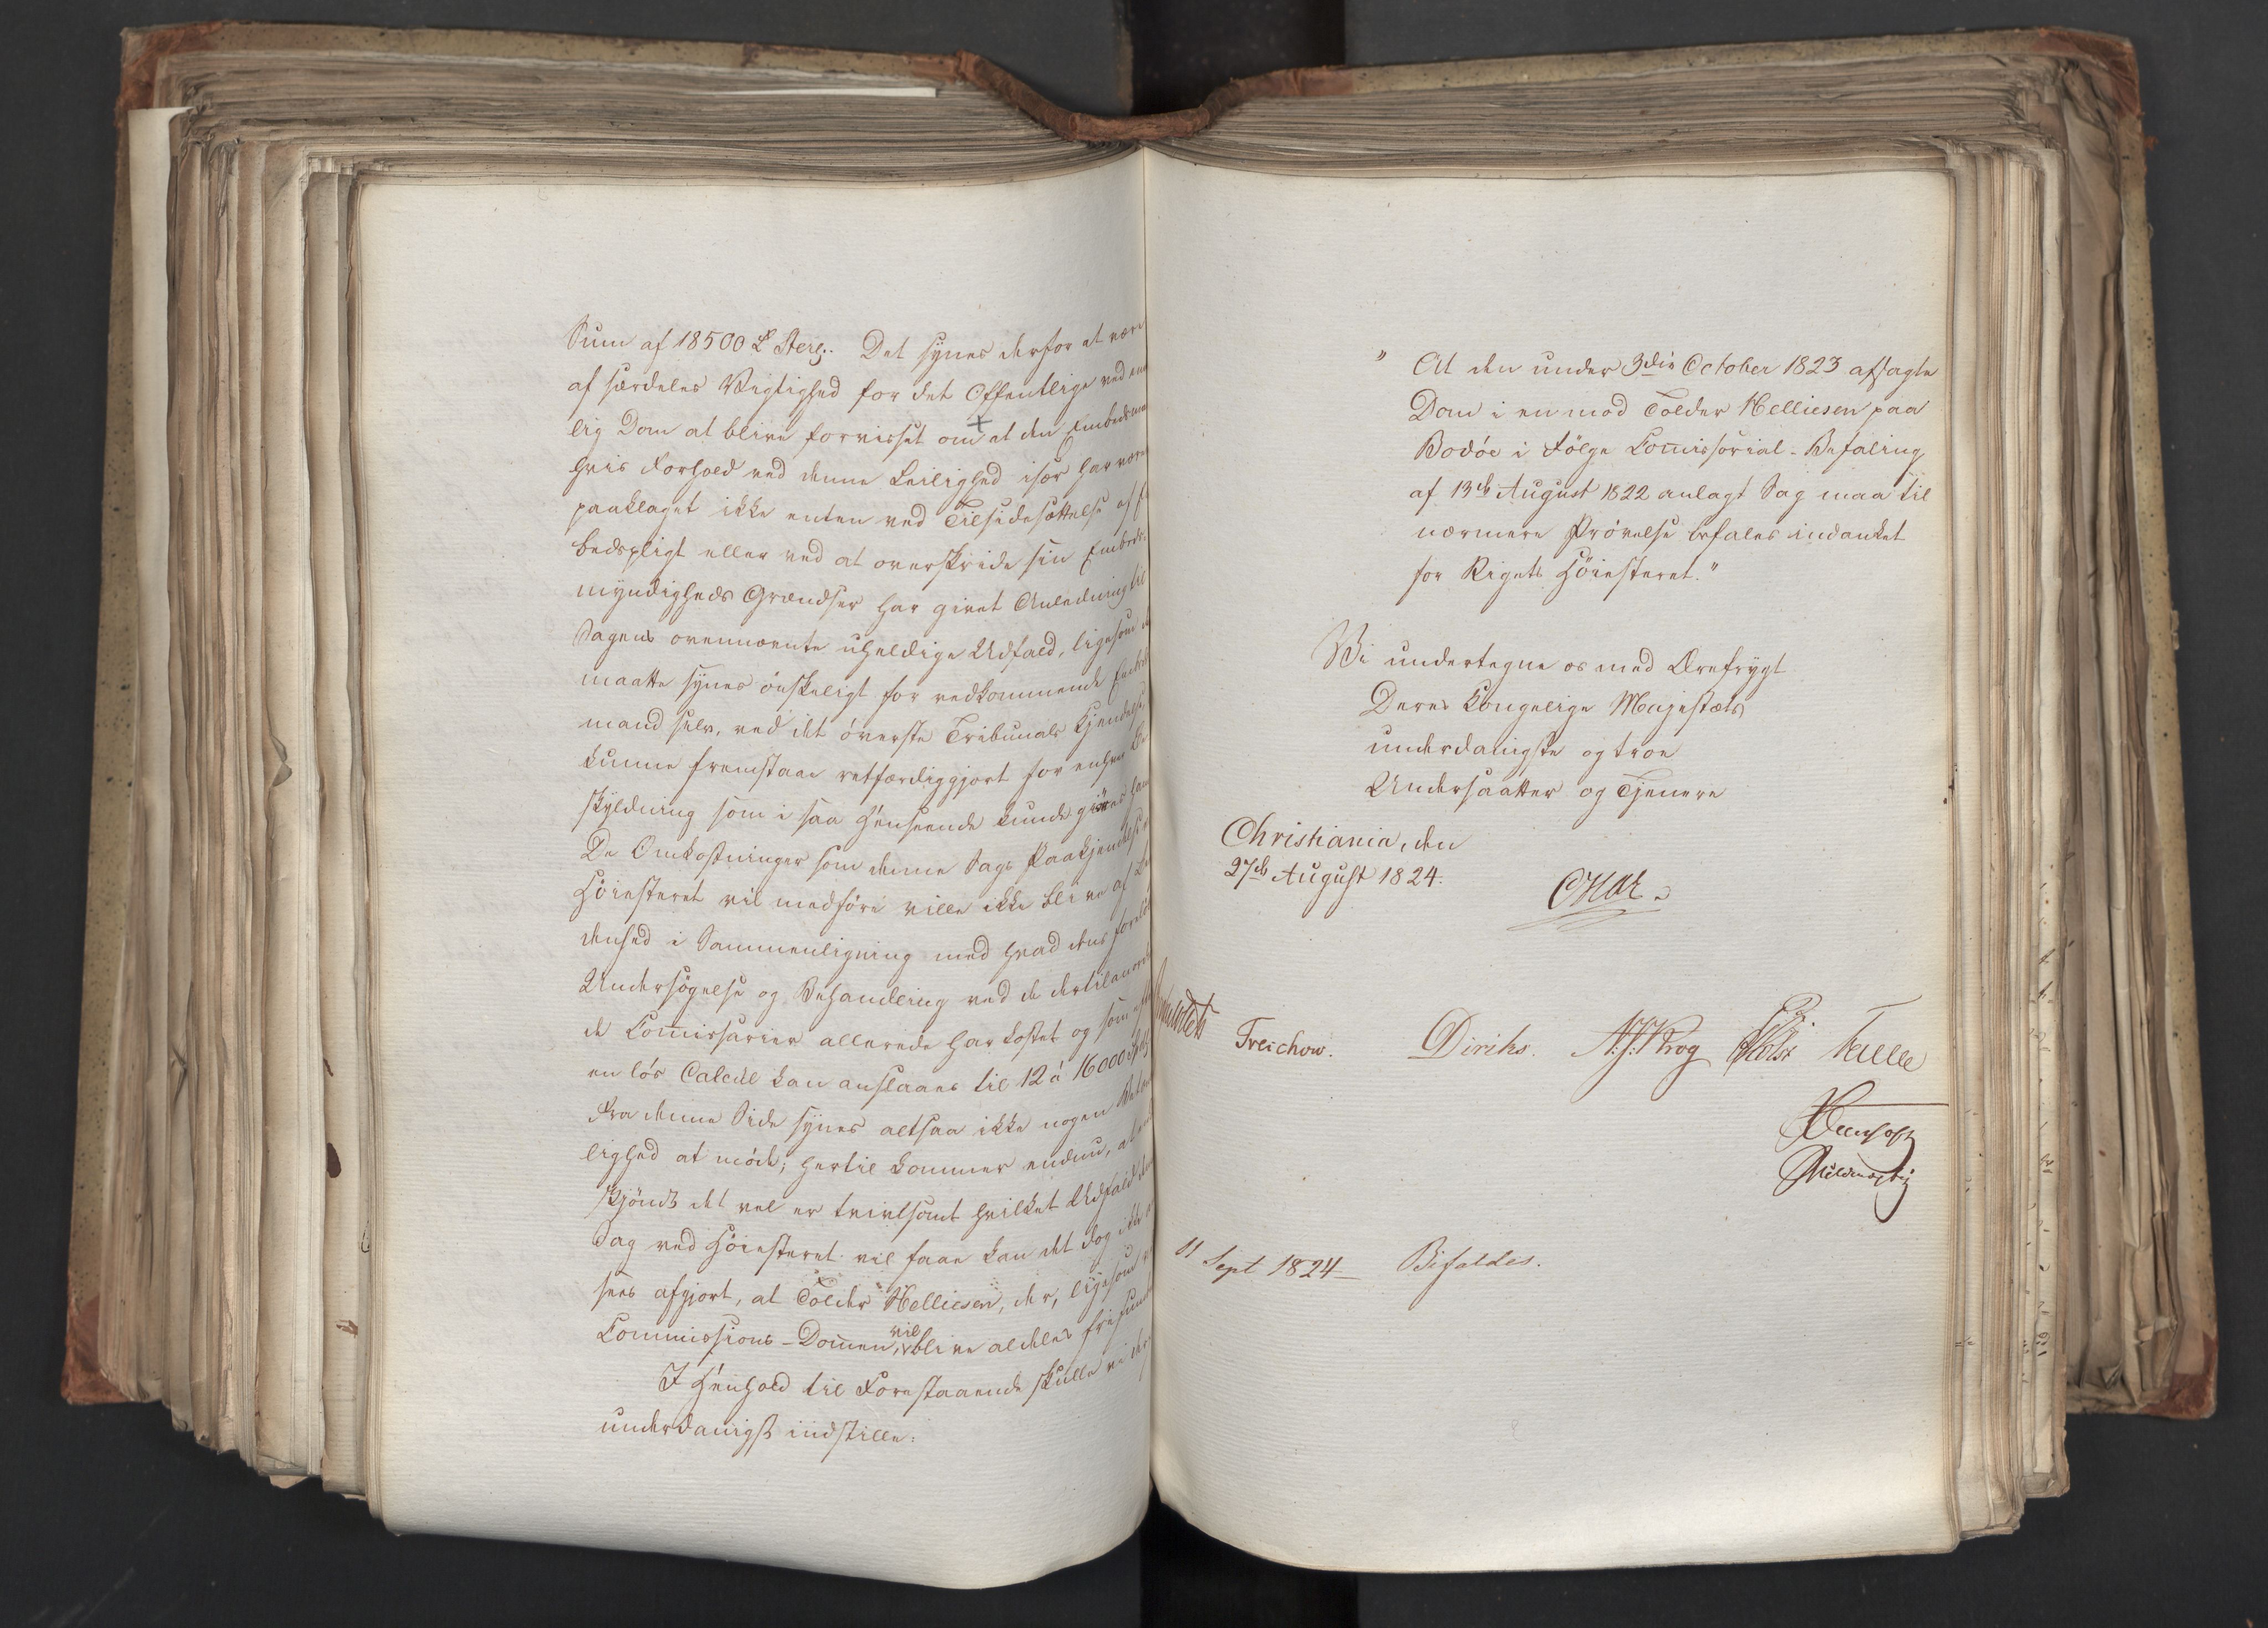 Sum af 18500 £ Sterl. Det synes derfor at være
af særdeles Vigtighed for det Offentlige ved en
lig Dom at blive forvisset om at den Embedsma
hvis Forhold ved denne Leilighed især har være
paaklaget ikke enten ved Tilsidesættelse af
bedspligt eller ved at overskride sin Embeds-
myndigheds Grændser har givet Anledning til
Sagens ovennævnte uheldige Udfald, ligesom
maatte synes ønskeligt for vedkommende
mand selv, ved det øverste Tribunals Kjendelse,
kunne fremstaae retfærdiggjort for enhver
skyldning som i saa Henseende kunde giøres ham
De Omkostninger som denne Sags Paakjendelse
Høiesteret vil medføre ville ikke blive af
denhed i Sammenligning med hvad dens
Undersøgelse og Behandling ved de dertil anord
de Commissarier allerede har kostet og som
en løs Calcul kan anslaaes til 12 á 16000
Fra denne Side synes altsaa ikke nogen
lighed at møde; hertil kommer endnu, at
skjøndt det vel er tvivlsomt hvilket Udfald
Sag ved Høiesteret vil faae kan det dog ikke
sees afgjort, at Tolder Helliesen, der, ligesom
Commissions-Dommen, vil blive aldeles frifund
I Henhold til Forestaaende skulle vi
underdanigst indstille:
" At den under 3die October 1823 afsagte
Dom i en mod Tolder Helliesen paa
Bodøe i Følge Commissorial-Befaling
af 13de August 1822 anlagt Sag maa til
nærmere Prøvelse befales indanket
for Rigets Høiesteret."
Vi undertegne os med Ærefrygt
Deres Kongelige Majestæts
underdanigste og troe
Undersaatter og Tjenere
Christiania, den
27de August 1824.
Treschow. Diriks. Krog Holst Falbe
11 Sept 1824 Bifaldes.